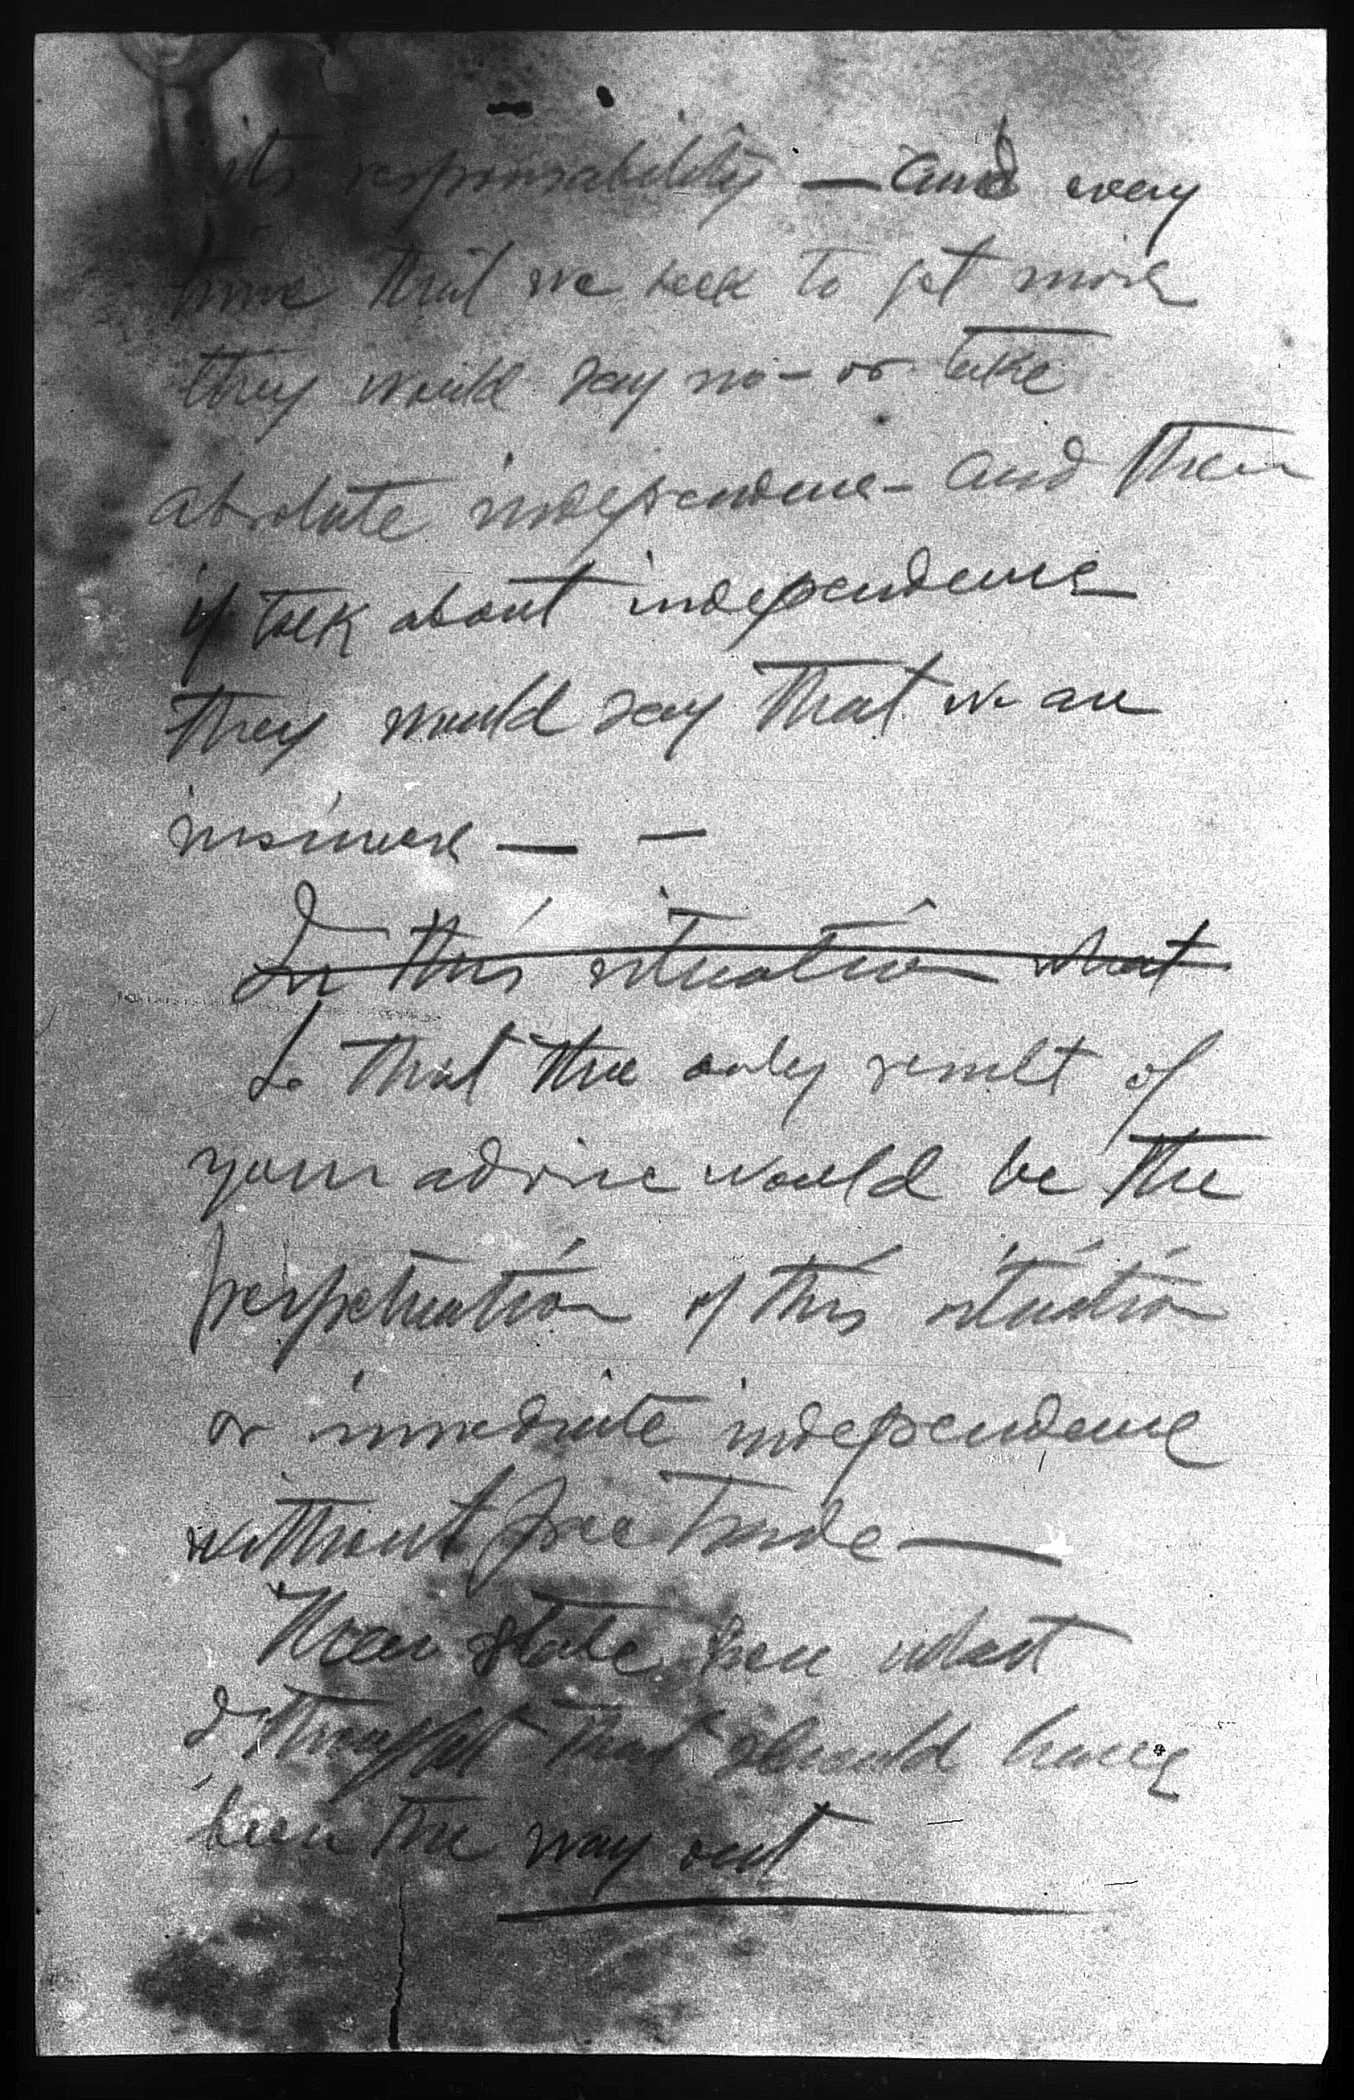 its responsability — and every
time that we seek to get more
they would say no – or take
absolute independence – and then
if talk about independence
they would say that we are
insincere — —
In this situation what
So that the only result of
your advice would be the
perpetuation of this situation
or immediate independence
without free trade —
Then state here what
I thought that should have
been the way out